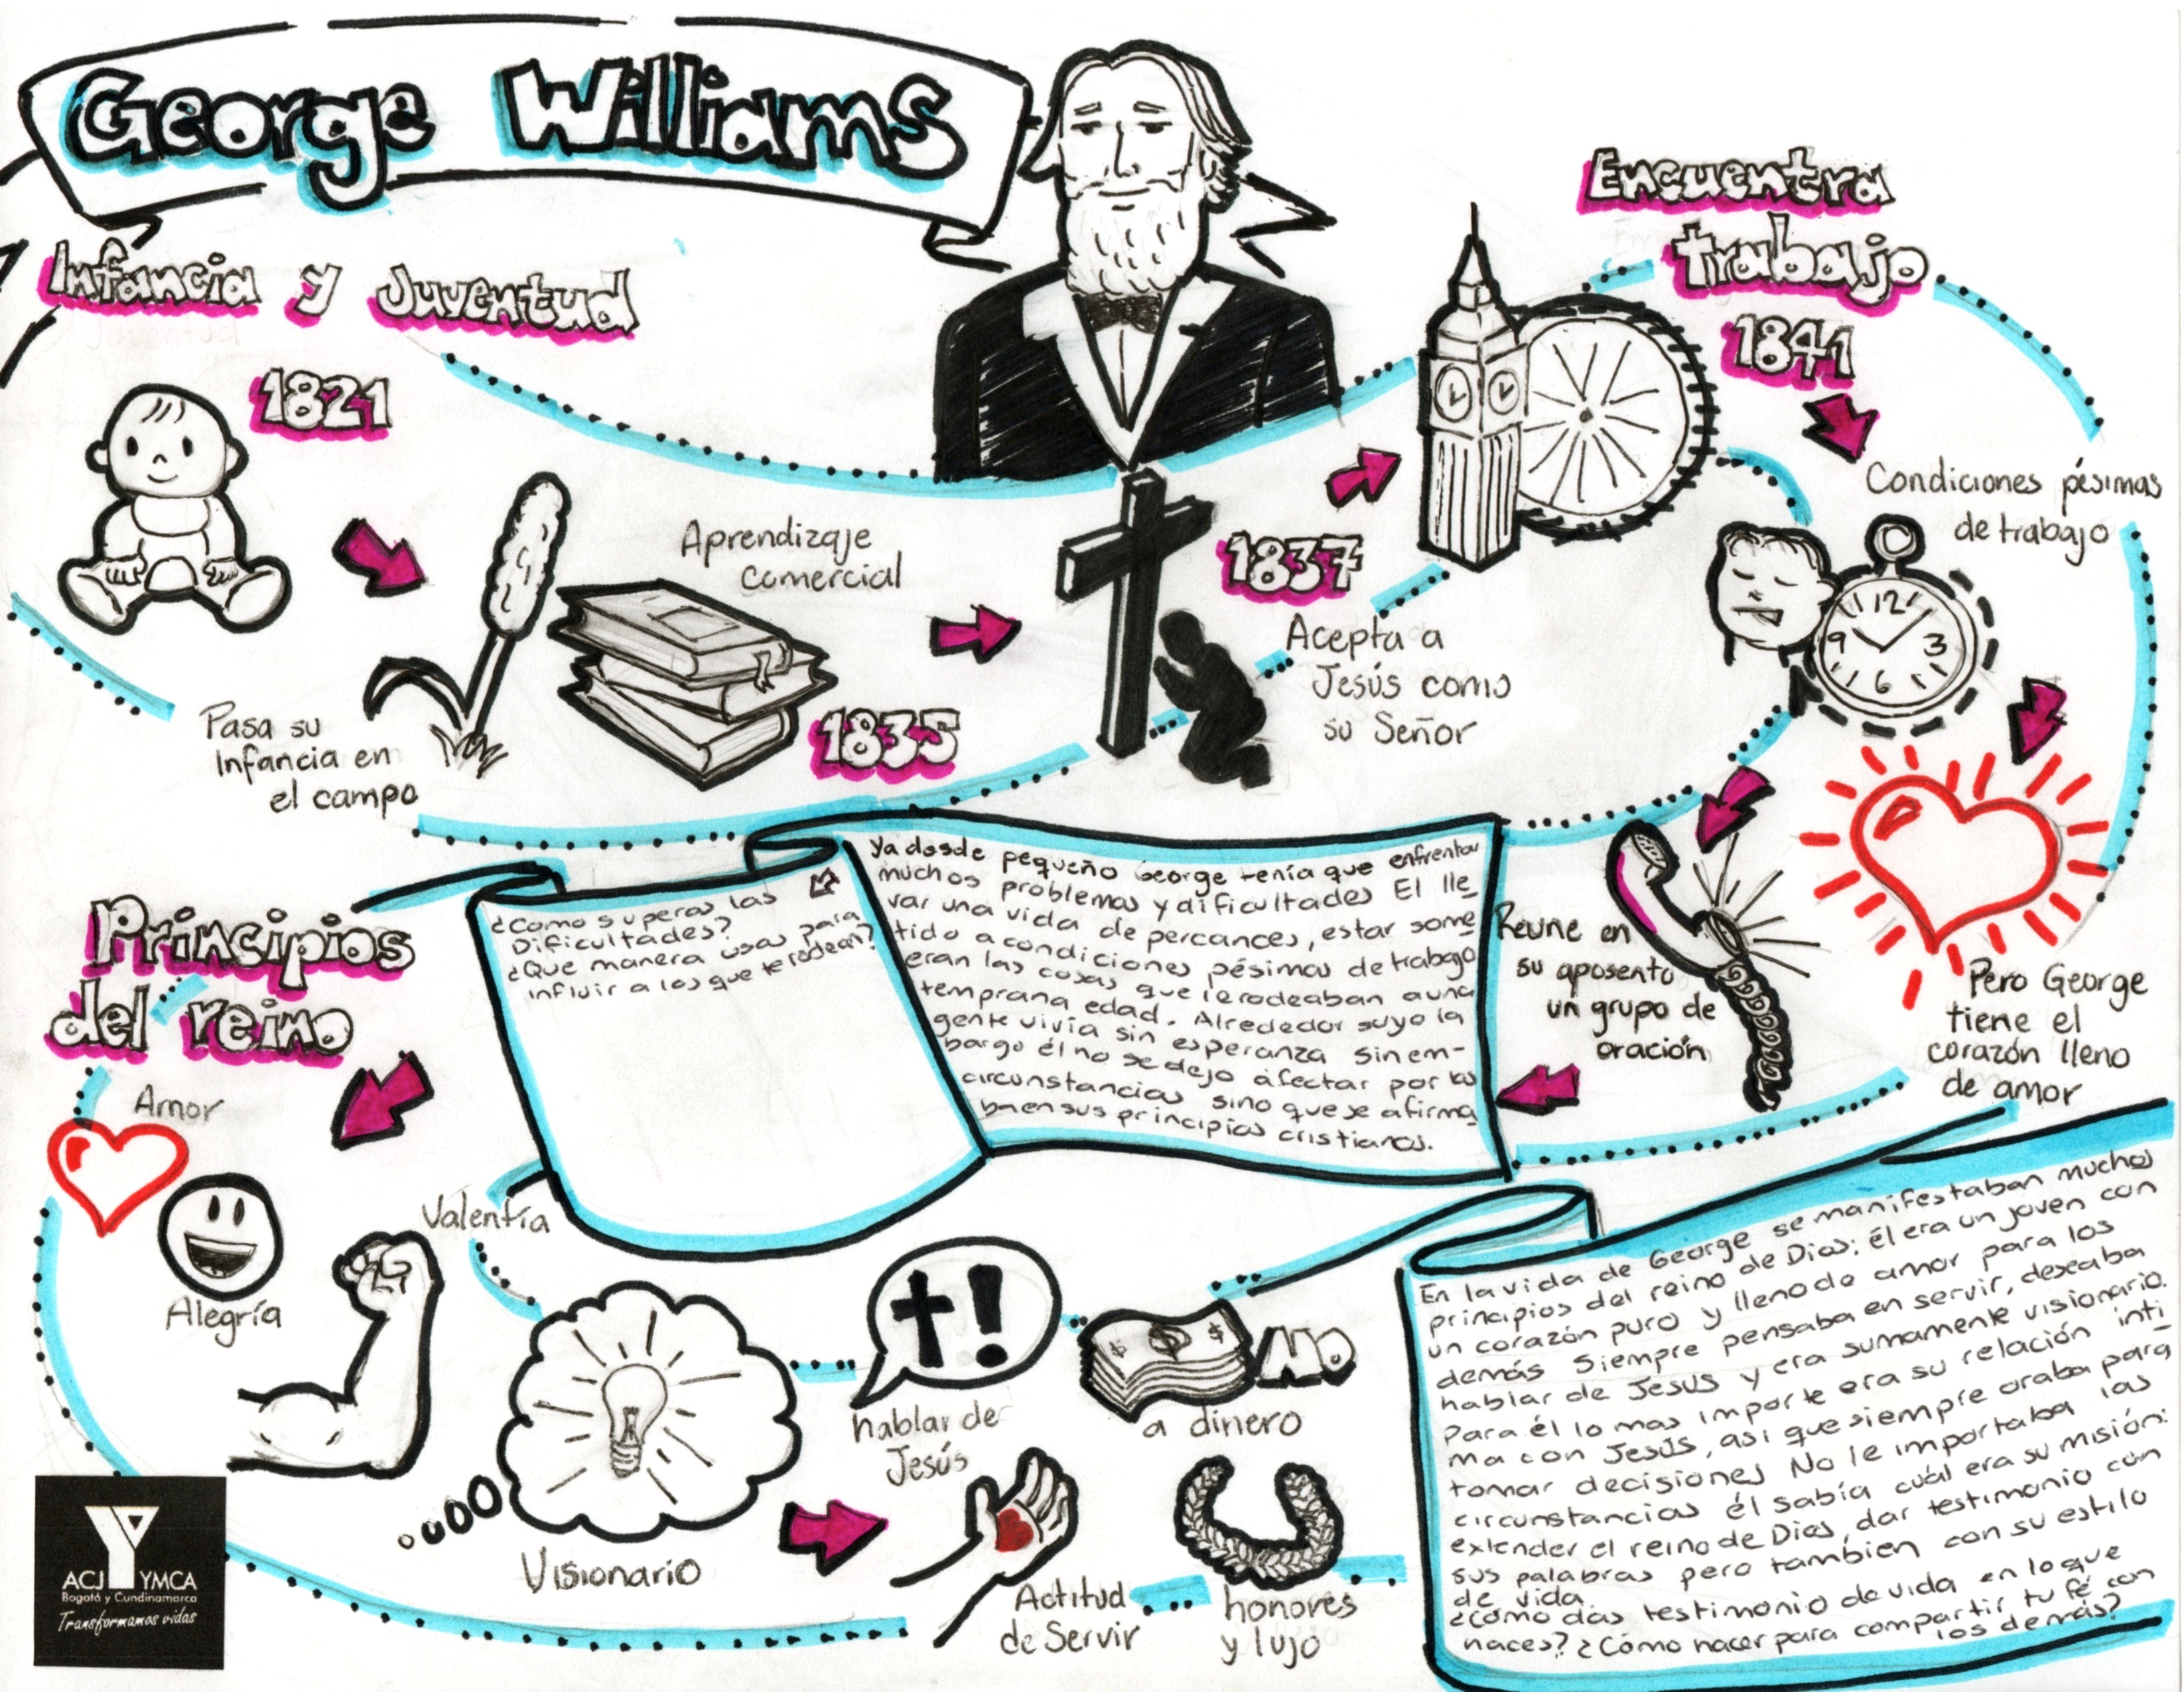 George Williams
Infancia y Juventud
1821
Pasa su
Infancia en
el campo
Aprendizaje
comercial
1835
1837
Acepta a
Jesús como
su Señor
Encuentra
trabajo
1841
Condiciones pésimas
de trabajo
12
9 3
6
Pero George
tiene el
corazón lleno
de amor
Reune en
su aposento
un grupo de
oración
Ya desde pequeño George tenía que enfrentar
muchos problemas y dificultades El lle
var una vida de percances, estar some
tido a condiciones pésimas de trabajo
eran las cosas que le rodeaban a una
temprana edad. Alrededor suyo la
gente vivía sin esperanza sin em-
bargo él no se dejo afectar por las
circunstancias sino que se afirma
ba en sus principios cristianos.
¿Como superas las
Dificultades?
¿Que manera usas para
influir a los que te rodean?
Principios
del reino
Amor
Alegría
Valentía
Visionario
hablar de
Jesús
$ $ $
NO
a dinero
Actitud
de Servir
honores
y lujo
En la vida de George se manifestaban muchos
principios del reino de Dios; él era un joven con
un corazón puro y lleno de amor para los
demás Siempre pensaba en servir, deseaba
hablar de Jesus y era sumamente visionario.
Para él lo mas importe era su relación inti
ma con Jesús, asi que siempre oraba para
tomar decisiones No le importaba las
circunstancias él sabía cuál era su misión:
extender el reino de Dios, dar testimonio con
sus palabras pero tambien con su estilo
de vida.
¿Cómo das testimonio de vida en lo que
haces? ¿Cómo hacer para compartir tu fé con
los demás?
ACJ YMCA
Bogotá y Cundinamarca
Transformamos vidas